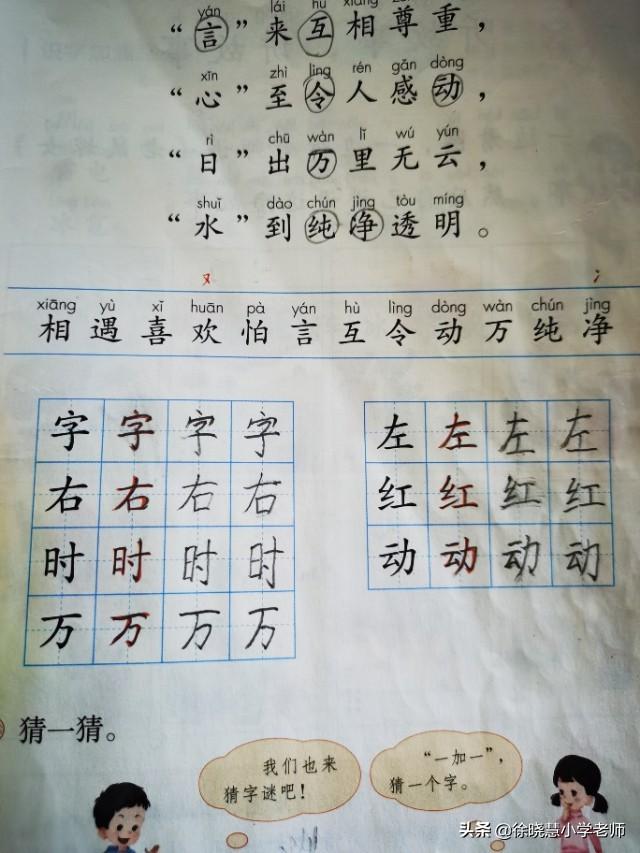 yán lái hù xiāng zūn zhòng
“言”来互相尊重，
xīn zhì lìng rén gǎn dòng
“心”至令人感动，
rì chū wàn lǐ wú yún
“日”出万里无云，
shuǐ dào chún jìng tòu míng
“水”到纯净透明。
又 冫
xiāng yù xǐ huān pà yán hù lìng dòng wàn chún jìng
相遇喜欢怕言互令动万纯净
字字字字
右右右右
时时时时
万万万万
左左左左
红红红红
动动动动
猜一猜。
我们也来
猜字谜吧！
“一加一”，
猜一个字。
头条 @徐晓慧小学老师